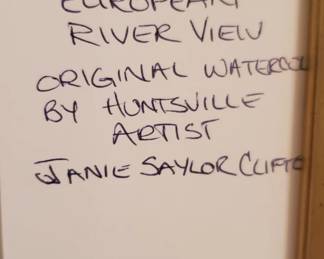 EUROPEAN
RIVER VIEW
ORIGINAL WATERCOL
BY HUNTSVILLE
ARTIST
JANIE SAYLOR CLIFTO